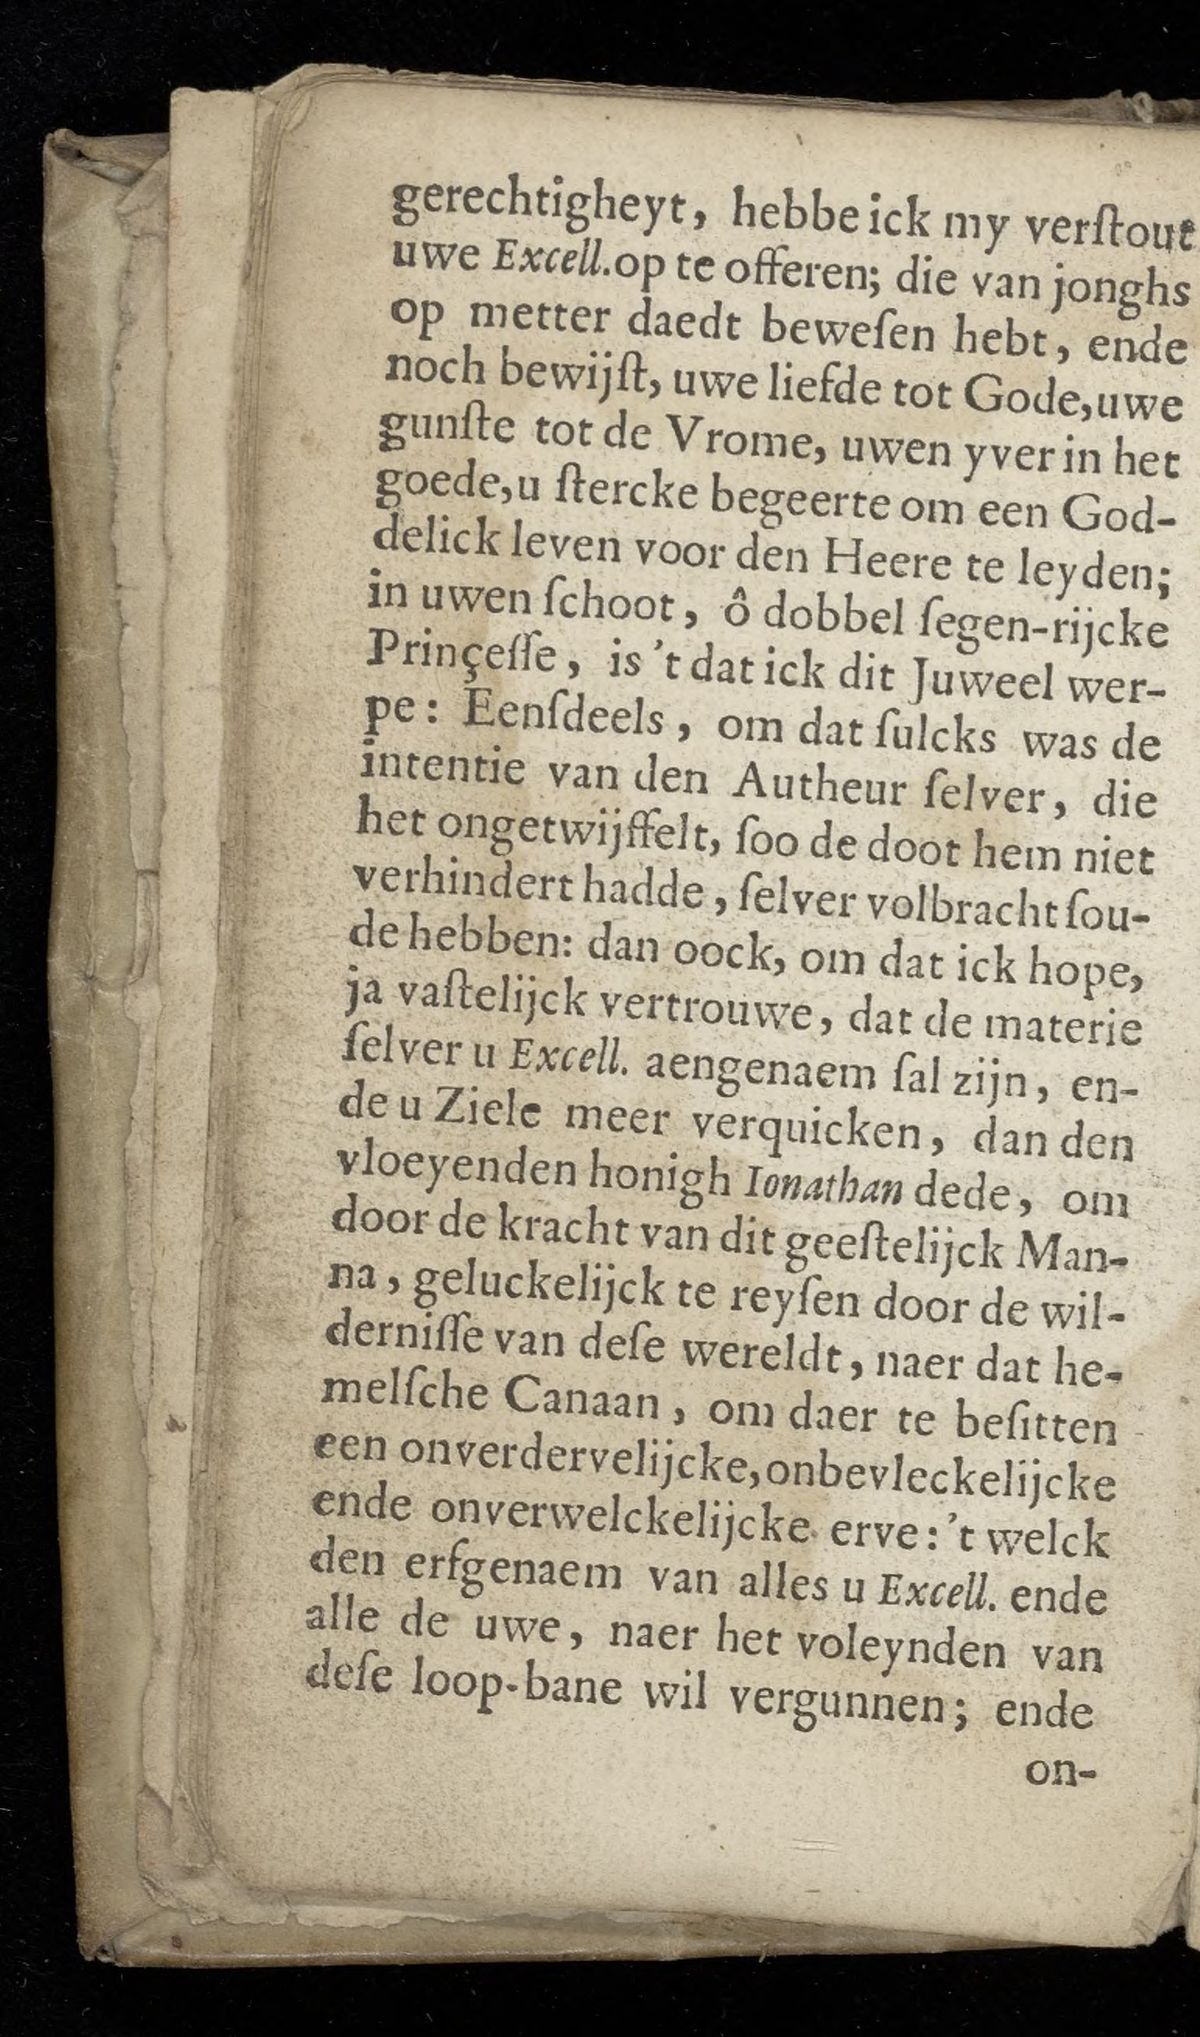 gerechtigheyt, hebbe ick my verſtout
uwe Excell. op te offeren; die van jonghs
op metter daedt beweſen hebt, ende
noch bewijſt, uwe liefde tot Gode, uwe
gunſte tot de Vrome, uwen yver in het
goede, u ſtercke begeerte om een God-
delick leven voor den Heere te leyden;
in uwen ſchoot, ô dobbel ſegen-rijcke
Prinçeſſe, is 't dat ick dit Juweel wer-
pe: Eenſdeels, om dat ſulcks was de
intentie van den Autheur ſelver, die
het ongetwijffelt, ſoo de doot hem niet
verhindert hadde, ſelver volbracht ſou-
de hebben: dan oock, om dat ick hope,
ja vaſtelijck vertrouwe, dat de materie
ſelver u Excell. aengenaem ſal zijn, en-
de u Ziele meer verquicken, dan den
vloeyenden honigh Ionathan dede, om
door de kracht van dit geeſtelijck Man-
na, geluckelijck te reyſen door de wil-
derniſſe van deſe wereldt, naer dat he-
melſche Canaan, om daer te beſitten
een onverdervelijcke, onbevleckelijcke
ende onverwelckelijcke erve: 't welck
den erfgenaem van alles u Excell. ende
alle de uwe, naer het voleynden van
deſe loop-bane wil vergunnen; ende
on-